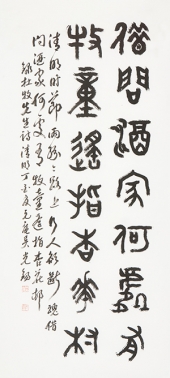 借問酒家何處有
牧童遙指杏花村
清明時節雨紛紛路上行人欲斷魂借
問酒家何處有牧童遙指杏花邨
錄杜牧先生詩清明丁